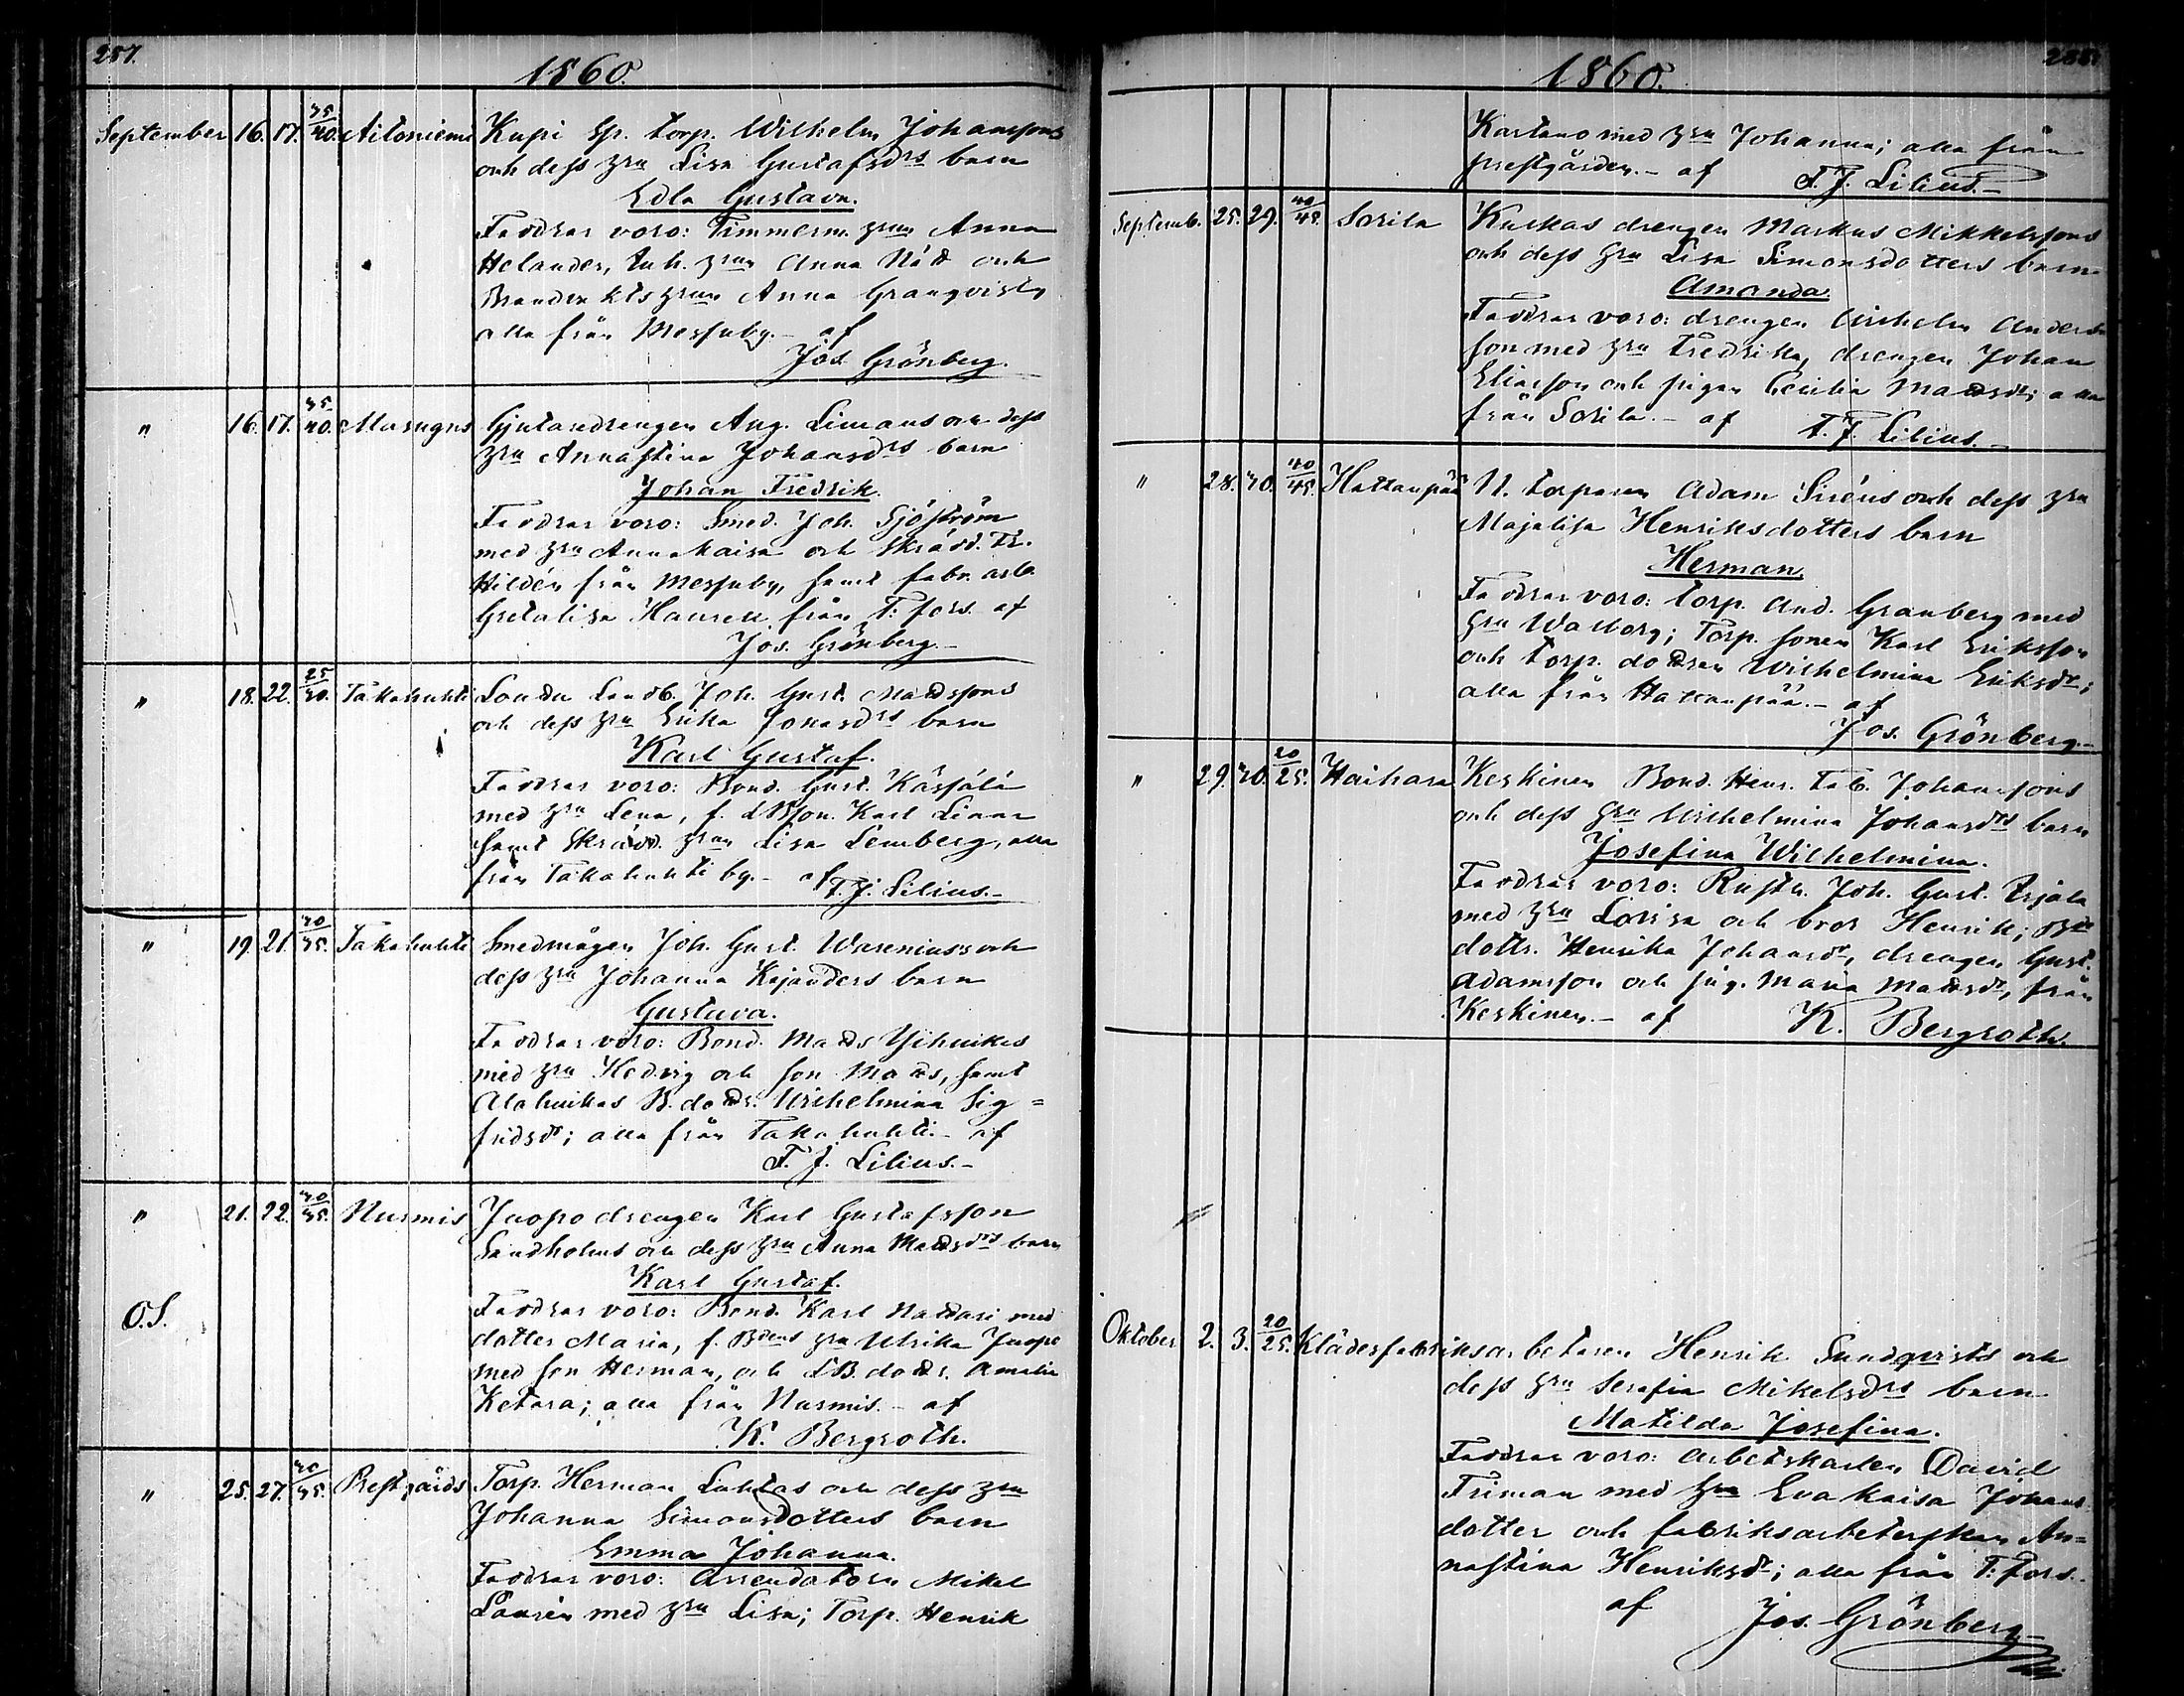 257.
1860.
September 16. 17. 35/40. Aitoniemi Kupi Sp. torp. Wilhelm Johanssons
och dess hru Lisa Gustafsdrs barn
Edla Gustava.
Faddrar voro: Timmerm. hrun Anna
Helander, Inh. hrun Anna Nätt och
Brandvkts hrun Anna Granqvist,
alla från Messuby. – af
Jos. Grönberg.
" 16. 17. 35/40. Marugns Gjutaredrengen Aug. Limans och dess
hru Annastina Johansdrs barn
Johan Fredrik.
Faddrar voro: Smed. Joh. Sjöström
med hru Anna Kaisa och Skrädd. Fr.
Hildén från Messuby, samt fabr. arb.
Gretalisa från T:fors af
Jos. Grönberg. –
" 18. 22. 25/30. Takahuhti Landb. Joh. Gust. Mattssons
och dess hru Erika Jonasdrs barn
Karl Gustaf.
Faddrar voro: Bond. Gust. Kärjälä
med hru Lena, f. LBson. Karl
samt Skrädd. hrun Lisa Lemberg, alla
från Takahuhti by. – af
F. J. Lilius. –
" 19. 21. 30/35. Takahuhti Smedmågen Joh. Gust. Wareniuss och
dess hru Johanna Kajanders barn
Gustava.
Faddrar voro: Bond. Matts Ylihuikas
med hru Hedvig och son Matts, samt
Alahuikas B. dottr. Wilhelmina Sig=
fridsdr; alla från Takahuhti. – af
F. J. Lilius. –
" 21. 22. 30/35. Nurmis Juopo drengen Karl Gustafsson
Sandholms och dess hru Anna Mattsdrs barn
Karl Gustaf.
O.S.
Faddrar voro: Bond. Karl Nattari med
dotter Maria, f. Bdens hru Ulrika Juopo
med son Herman, och LB. dottr. Amalia
Ketara; alla från Nurmis. – af
K. Bergroth.
" 25. 27. 30/35. Prestgårds Torp. Herman Luhtas och dess hru
Johanna Simonsdotters barn
Emma Johanna.
Faddrar voro: Arrendatorn Mikel
Laurén med hru Lisa; Torp. Henrik
1860.
Kartano med hru Johanna; alla från
prestgården. – af F. J. Lilius. –
Septemb. 25. 29. 40/45. Sorila Kuckas drengen Markus Mikkelssons
och dess hru Lisa Simonsdotters barn
Amanda.
Faddrar voro: drengen Wilhelm Anders
son med hru Fredrika, drengen Johan
Eliasson och pigan Cecilia Mattsdr; alla
från Sorila. – af F. J. Lilius. –
" 28. 30. 40/45. Hattanpää N. torparen Adam Siréns och dess hru
Majalisa Henriksdotters barn
Herman.
Faddrar voro: torp. And. Granberg med
hru Walborg; Torp. sonen Karl Eriksson
och torp. dottren Wilhelmina Eriksdr;
alla från Hattanpää. – af
Jos. Grönberg. –
" 29. 30. 20/25. Haihara Keskinen Bond. Henr. Fab. Johanssons
och dess hru Wilhelmina Johansdrs barn
Josefina Wilhelmina.
Faddrar voro: Rusth. Joh. Gust.
med hru Lovisa och bror Henrik; Bde
dottr. Henrika Johansdr, drengen Gust.
Adamsson och pig. Maria Mattsdr, från
Keskinen. – af K. Bergroth.
Oktober 2. 3. 20/25. Klädesfabriksarbetaren Henrik Sundqvists och
dess hru Serafia Mikelsdrs barn
Matilda Josefina.
Faddrar voro: Arbetskarlen David
Friman med hru Eva Kaisa Johans
dotter och fabriksarbeterskan An=
nastina Henriksdr; alla från T:fors. –
af Jos. Grönberg. –